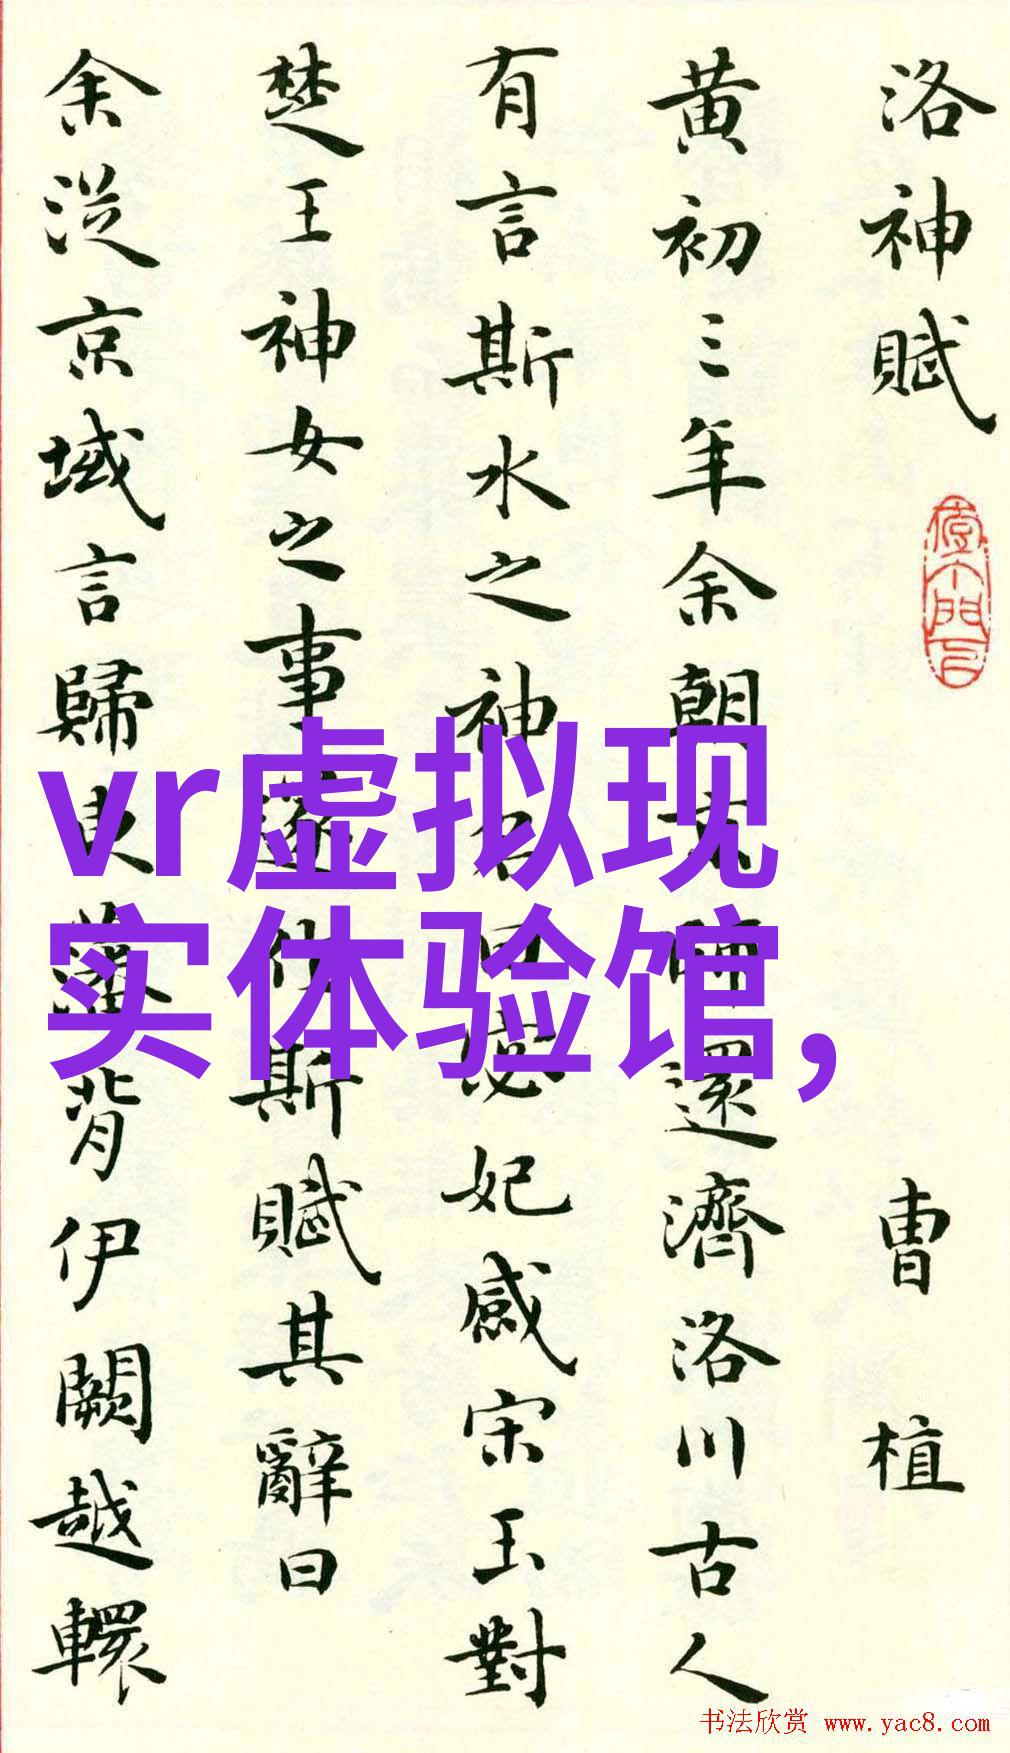 洛神賦
曹植
黄初三年余朝京師還濟洛川古人
有言斯水之神名曰宓妃感宋玉對
楚王神女之事遂作斯賦其辭曰
余從京域言歸東藩背伊闕越轘
vr虚拟现
实体验馆,
书法欣赏 www.yac8.com